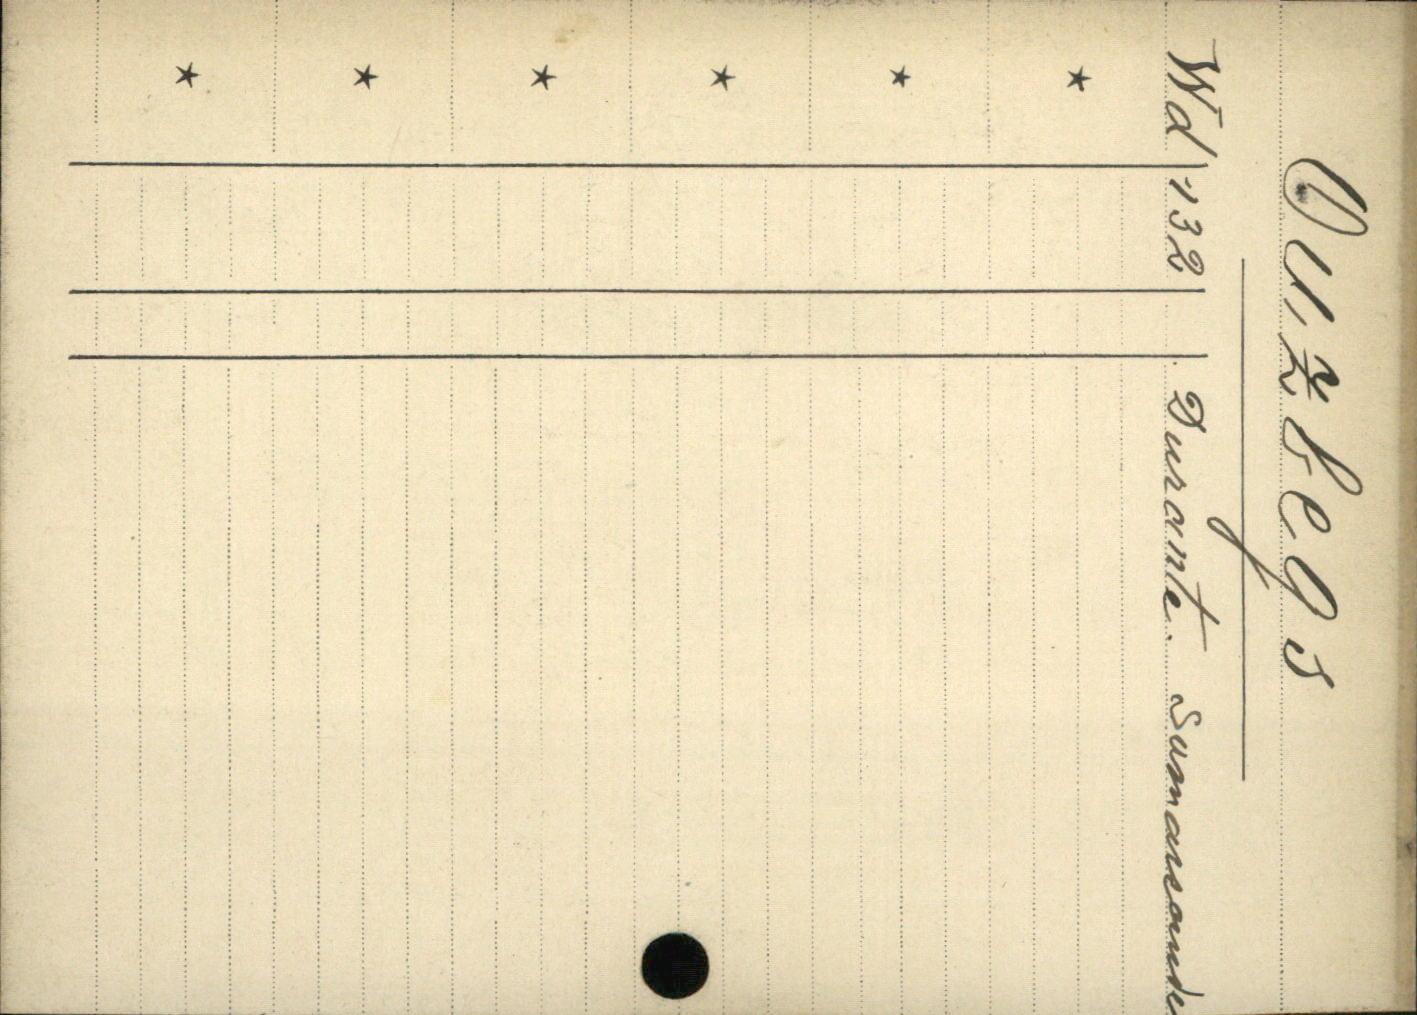 Ouzbegs
Wd 132 Durante. Samarcande